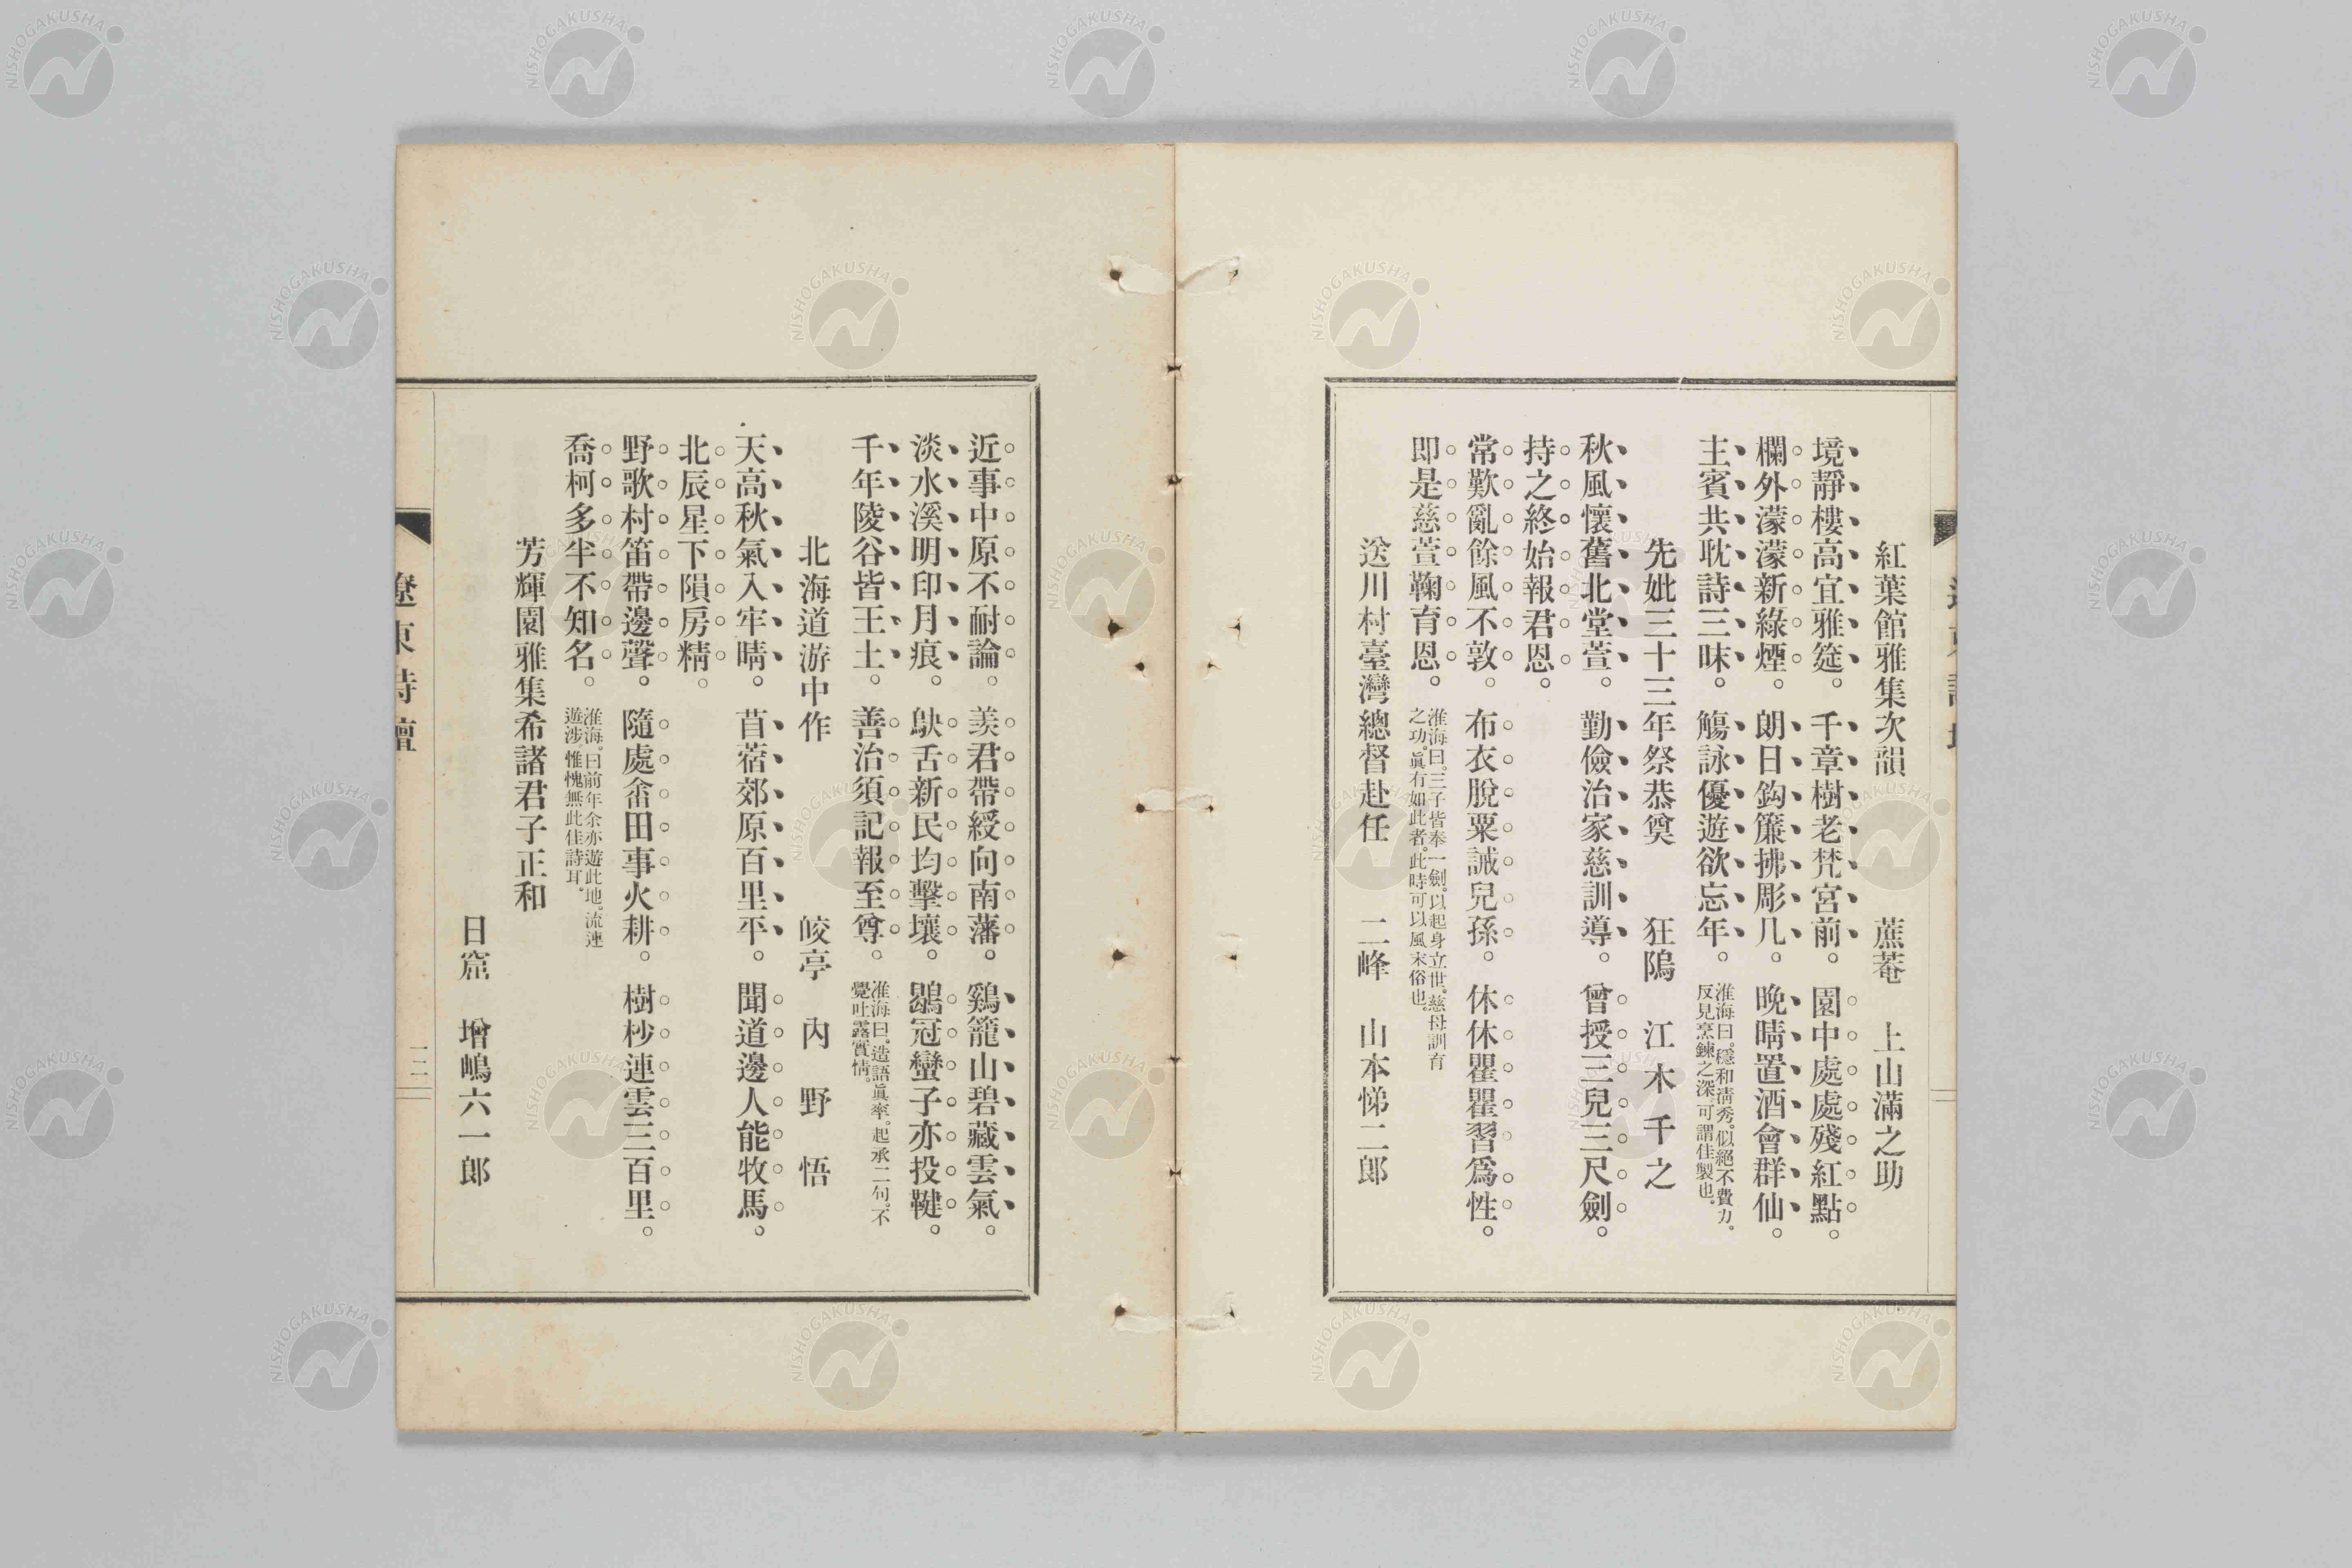 紅葉館雅集次韻　蔗菴　上山滿之助
境靜樓高宜雅筵。千章樹老梵宮前。園中處處殘紅點。
欄外濛濛新綠煙。朗日鈎簾拂彫几。晚晴置酒會群仙。
主賓共耽詩三昧。觴詠優遊欲忘年。淮海曰。穩和淸秀。似絕不費力。
反見烹鍊之深。可謂佳製也。
先妣三十三年祭恭奠　狂鵭　江木千之
秋風懷舊北堂萱。勤儉治家慈訓導。曾授三兒三尺劍。
持之終始報君恩。
常歎亂餘風不敦。布衣脫粟誡兒孫。休休瞿瞿習爲性。
即是慈萱鞠育恩。淮海曰。三子皆奉一劍。以起身立世。慈母訓育
之功。眞有如此者。此時可以風末俗也。
送川村臺灣總督赴任　二峰　山本悌二郎
近事中原不耐論。羨君帶綬向南藩。鷄籠山碧藏雲氣。
淡水溪明印月痕。鴃舌新民均擊壤。鶡冠蠻子亦投鞬。
千年陵谷皆王土。善治須記報至尊。淮海曰。造語眞率。起承二句。不
覺吐露實情。
北海道游中作　皎亭　內野悟
天高秋氣入牢晴。苜蓿郊原百里平。聞道邊人能牧馬。
北辰星下隕房精。
野歌村笛帶邊聲。隨處畬田事火耕。樹杪連雲三百里。
喬柯多半不知名。淮海。曰前年余亦遊此地。流連
遊涉惟愧無此佳詩耳。
芳輝園雅集希諸君子正和
日窓　增嶋六一郎
遼東詩壇
三
NISHOGAKUSHA